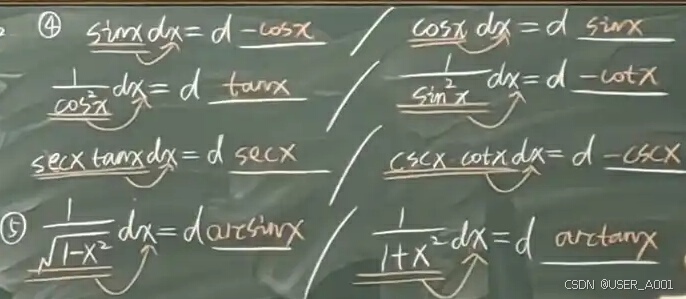 ④ sinx dx = d -cosx / cosx dx = d sinx
1/cos²x dx = d tanx / 1/sin²x dx = d -cotx
secx tanx dx = d secx / cscx·cotx dx = d -cscx
⑤ 1/√(1-x²) dx = d arcsinx / 1/(1+x²) dx = d arctanx
CSDN @USER_A001